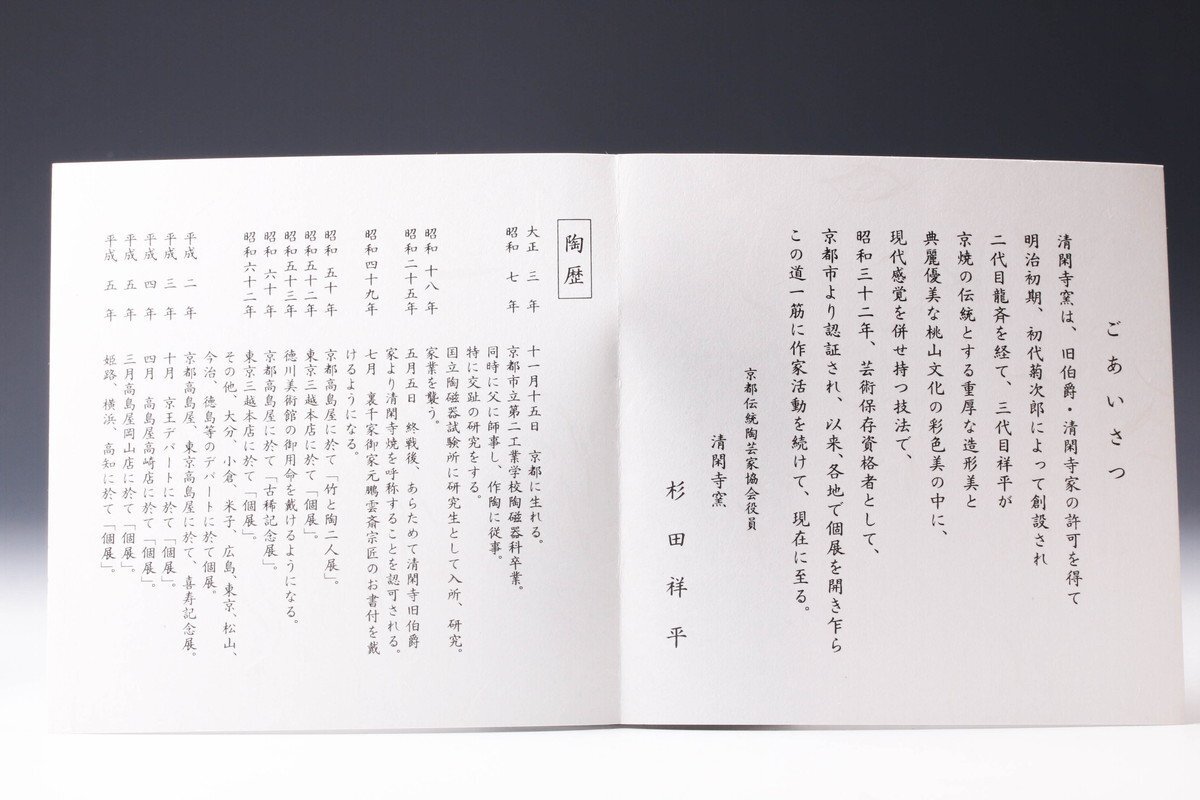 ごあいさつ
清閑寺窯は、旧伯爵・清閑寺家の許可を得て
明治初期、初代菊次郎によって創設され
二代目龍斉を経て、三代目祥平が
京焼の伝統とする重厚な造形美と
典麗優美な桃山文化の彩色美の中に、
現代感覚を併せ持つ技法で、
昭和三十二年、芸術保存資格者として、
京都市より認証され、以来、各地で個展を開き乍ら
この道一筋に作家活動を続けて、現在に至る。
京都伝統陶芸家協会役員
清閑寺窯
杉田祥平
陶歴
大正 三 年 十一月十五日 京都に生れる。
昭和 七 年 京都市立第二工業学校陶磁器科卒業。
同時に父に師事し、作陶に従事。
特に交趾の研究をする。
国立陶磁器試験所に研究生として入所、研究。
昭和 十八 年 家業を襲う。
昭和二十五年 五月五日 終戦後、あらためて清閑寺旧伯爵
家より清閑寺焼を呼称することを認可される。
昭和四十九年 七月 裏千家御家元鵬雲斎宗匠のお書付を戴
けるようになる。
昭和 五十 年 京都高島屋に於て「竹と陶二人展」。
昭和五十二年 東京三越本店に於て「個展」。
昭和五十三年 徳川美術館の御用命を戴けるようになる。
昭和 六十 年 京都高島屋に於て「古稀記念展」。
昭和六十二年 東京三越本店に於て「個展」。
その他、大分、小倉、米子、広島、東京、松山、
今治、徳島等のデパートに於て個展。
平成 二 年 京都高島屋、東京高島屋に於て、喜寿記念展。
平成 三 年 十月 京王デパートに於て「個展」。
平成 四 年 四月 高島屋高崎店に於て「個展」。
平成 五 年 三月高島屋岡山店に於て「個展」。
平成 五 年 姫路、横浜、高知に於て「個展」。